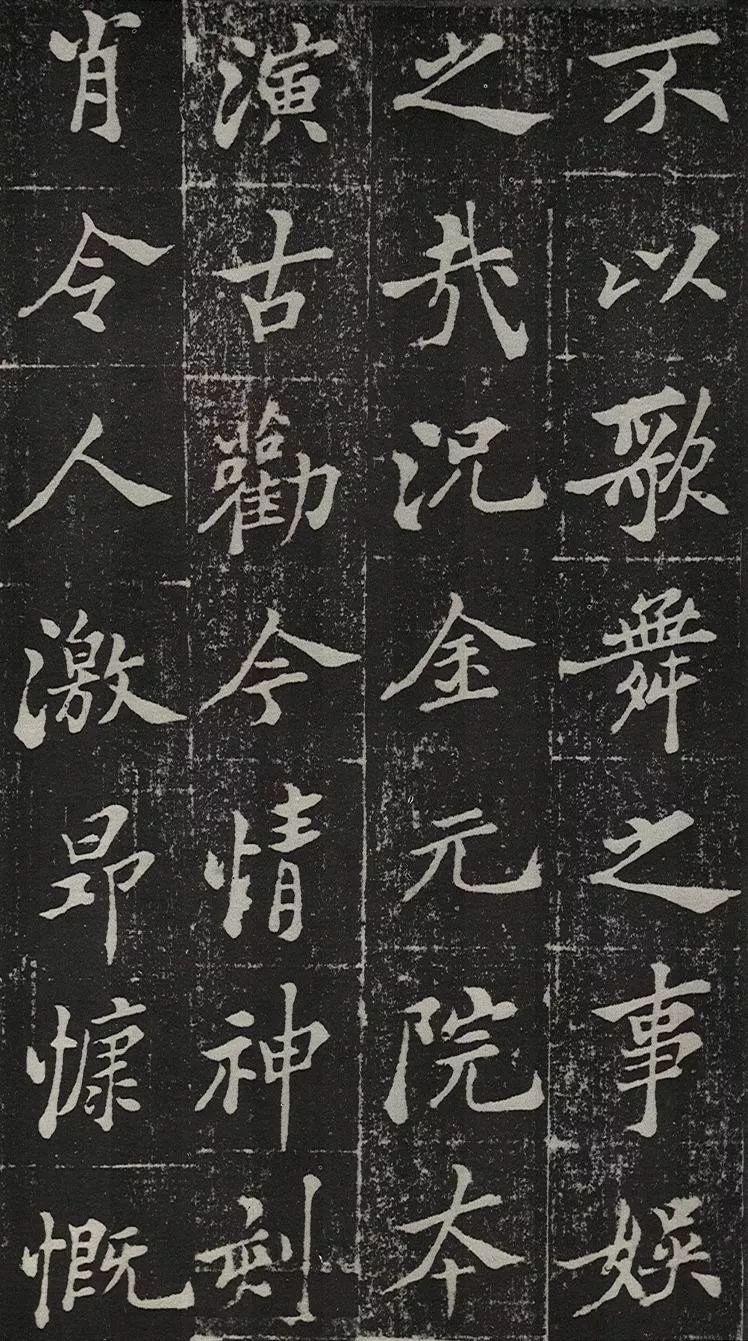 不以歌舞之事娛
之哉況金元院本
演古勸今情神刻
肖令人激昂慷慨